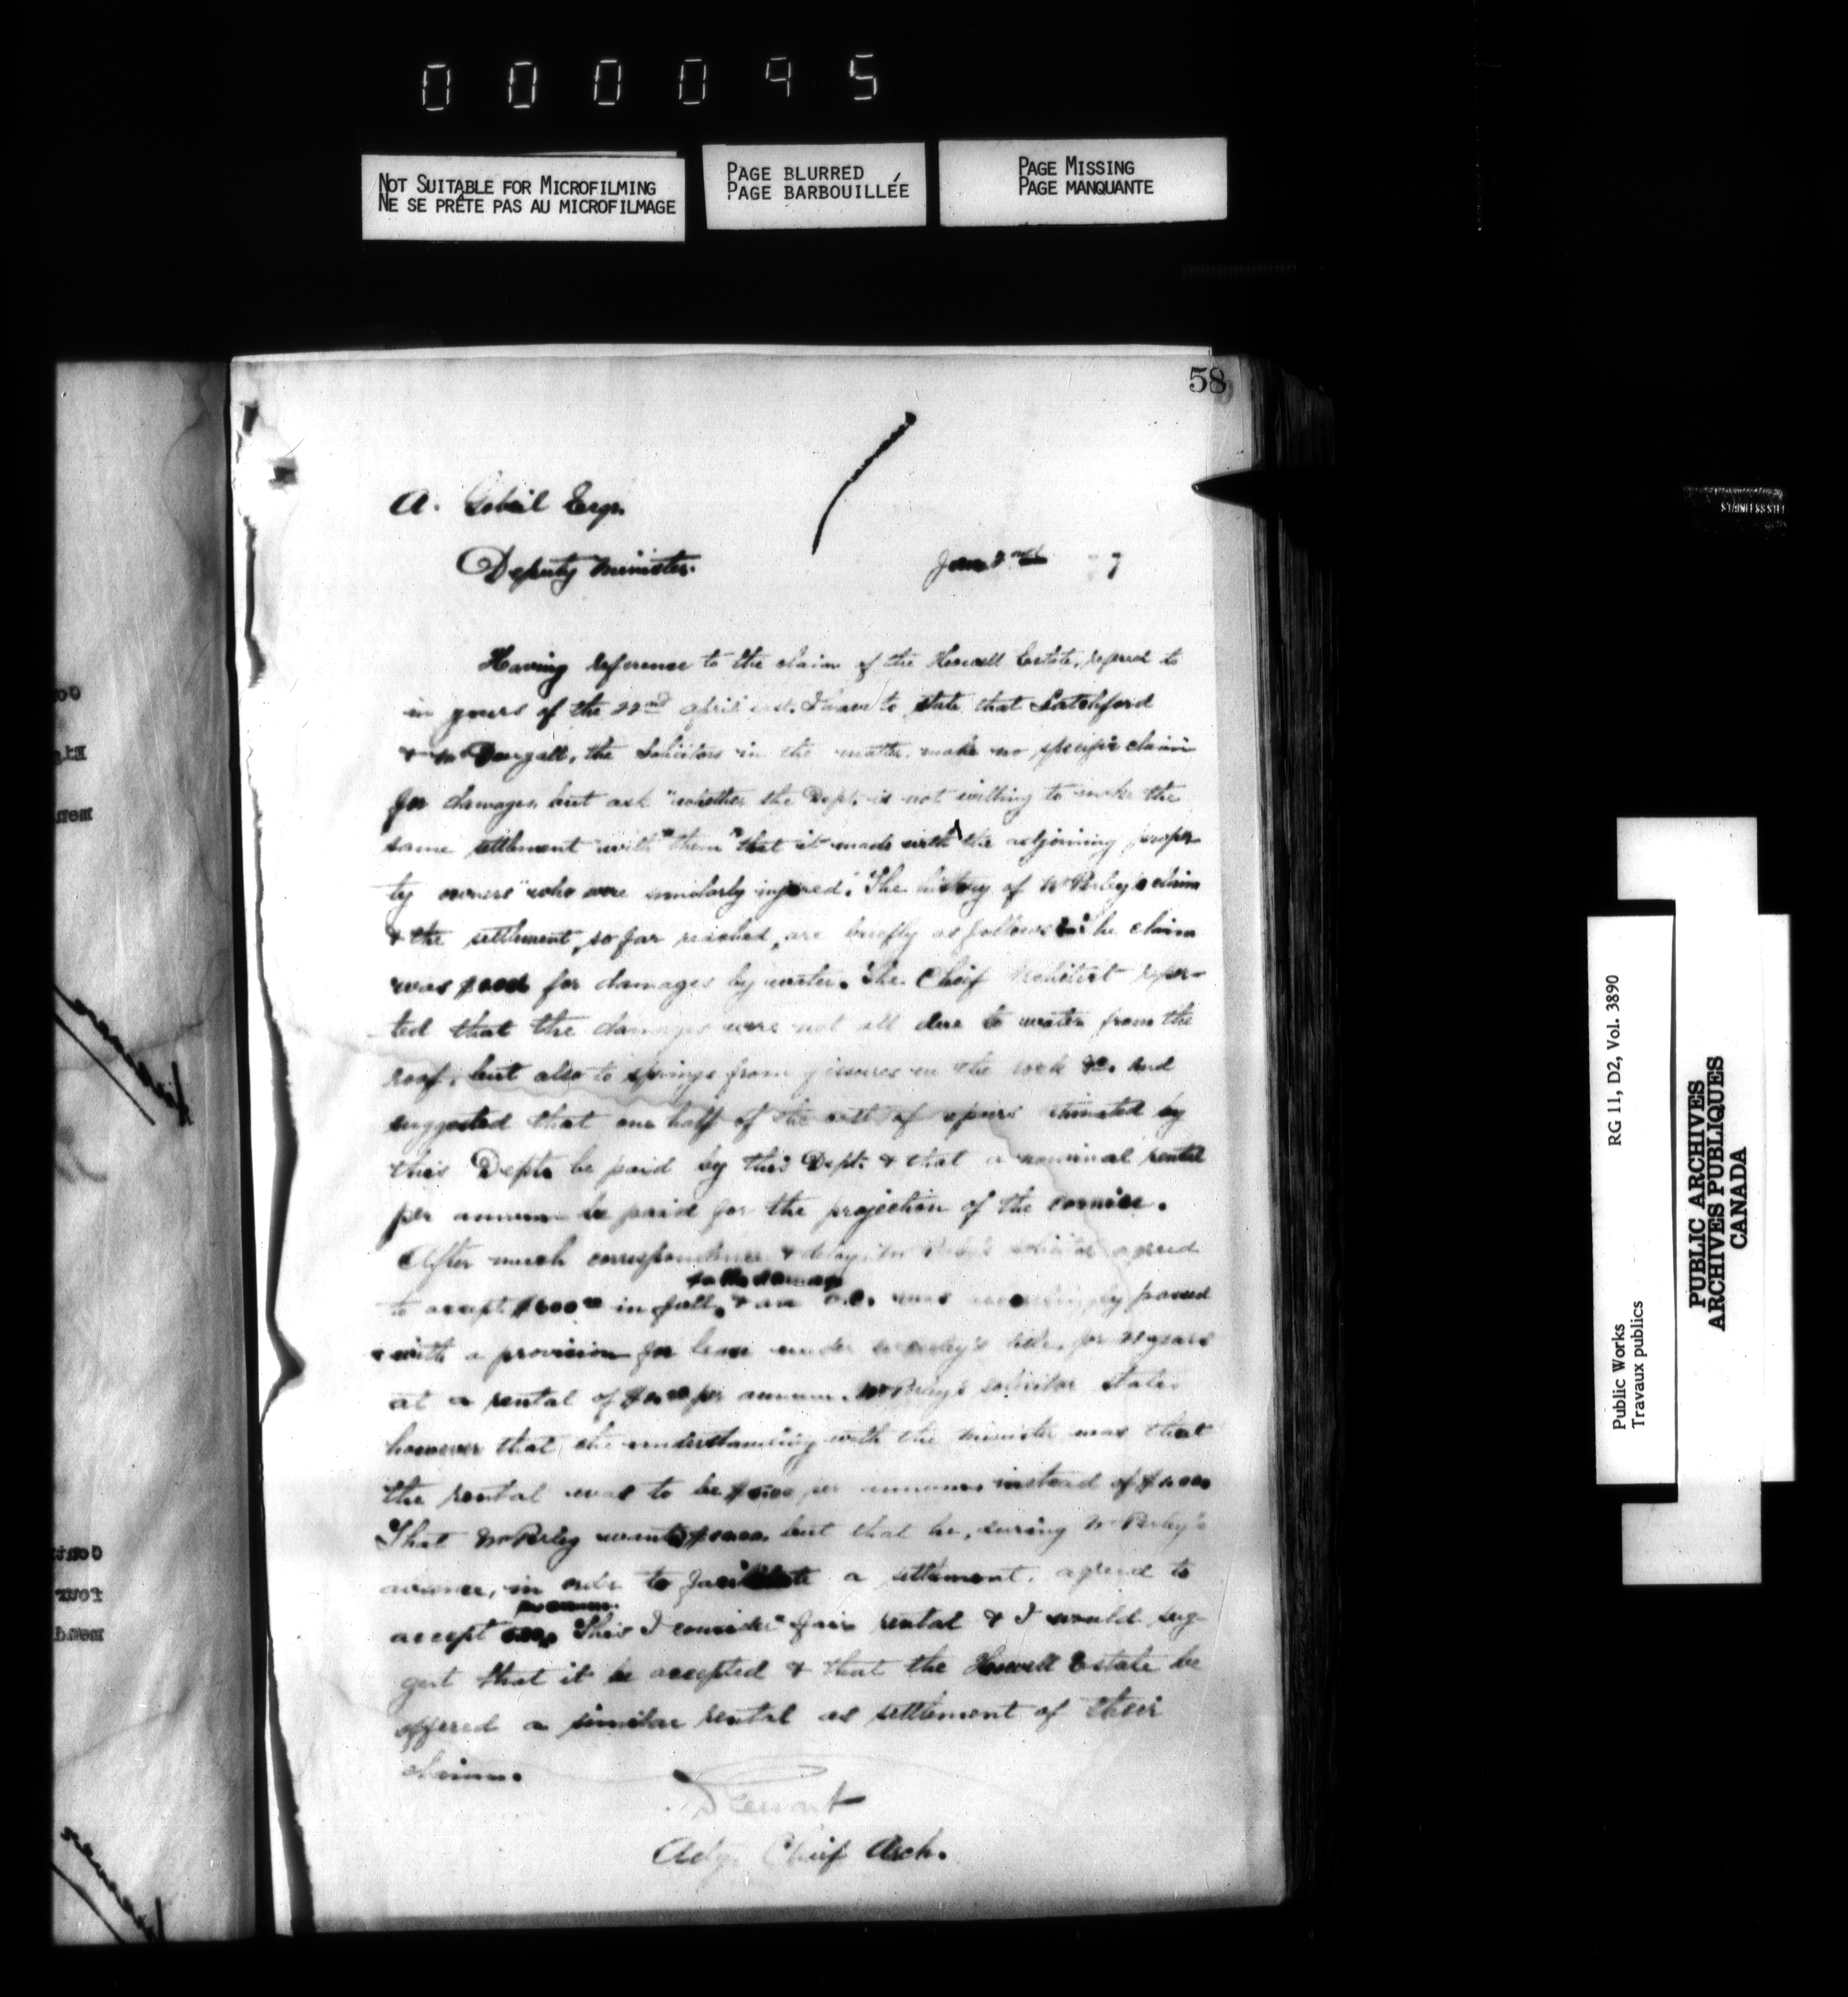 000095
NOT SUITABLE FOR MICROFILMING
NE SE PRÊTE PAS AU MICROFILMAGE
PAGE BLURRED
PAGE BARBOUILLÉE
PAGE MISSING
PAGE MANQUANTE
58
A. Gobeil Esqr.
Deputy Minister.
Having reference to the claim of the Howell Estate, refered to
in yours of the 22nd April last. I have to state that Latchford
& McDougall, the Solicitors in the matter, make no specific claim
for damages, but ask "whether the Dept. is not willing to make the
same settlement with" them "that it made with the adjoining proper
ty owners" who were similarly injured". The history of Mr Perley's claim
& the settlement, so far reached, are briefly as follows: The claim
was for damages by water. The Chief Architect repor-
ted that the damages were not all due to water from the
roof, but also to springs from fissures in the rock &c. and
suggested that one half of the cost of repairs estimated by
this Dept. be paid by this Dept. & that a nominal rental
per annum be paid for the projection of the cornice.
After much correspondence & delay, Mr Perley's solicitor agreed
to accept $600.00 in full, & an O.C. was accordingly passed
with a provision for lease under for 21 years
at a rental of per annum. Mr Perley's solicitor states
however that the understanding with the Minister was that
the rental was to be per annum, instead of
That Mr Perley wanted but that he, during Mr Perley's
absence, in order to facilitate a settlement, agreed to
accept This I consider a fair rental & I would sug-
gest that it be accepted & that the Howell Estate be
offered a similar rental as settlement of their
claim.
D Ewart
Actg. Chief Arch.
RG 11, D2, Vol. 3890
Public Works
Travaux publics
PUBLIC ARCHIVES
ARCHIVES PUBLIQUES
CANADA